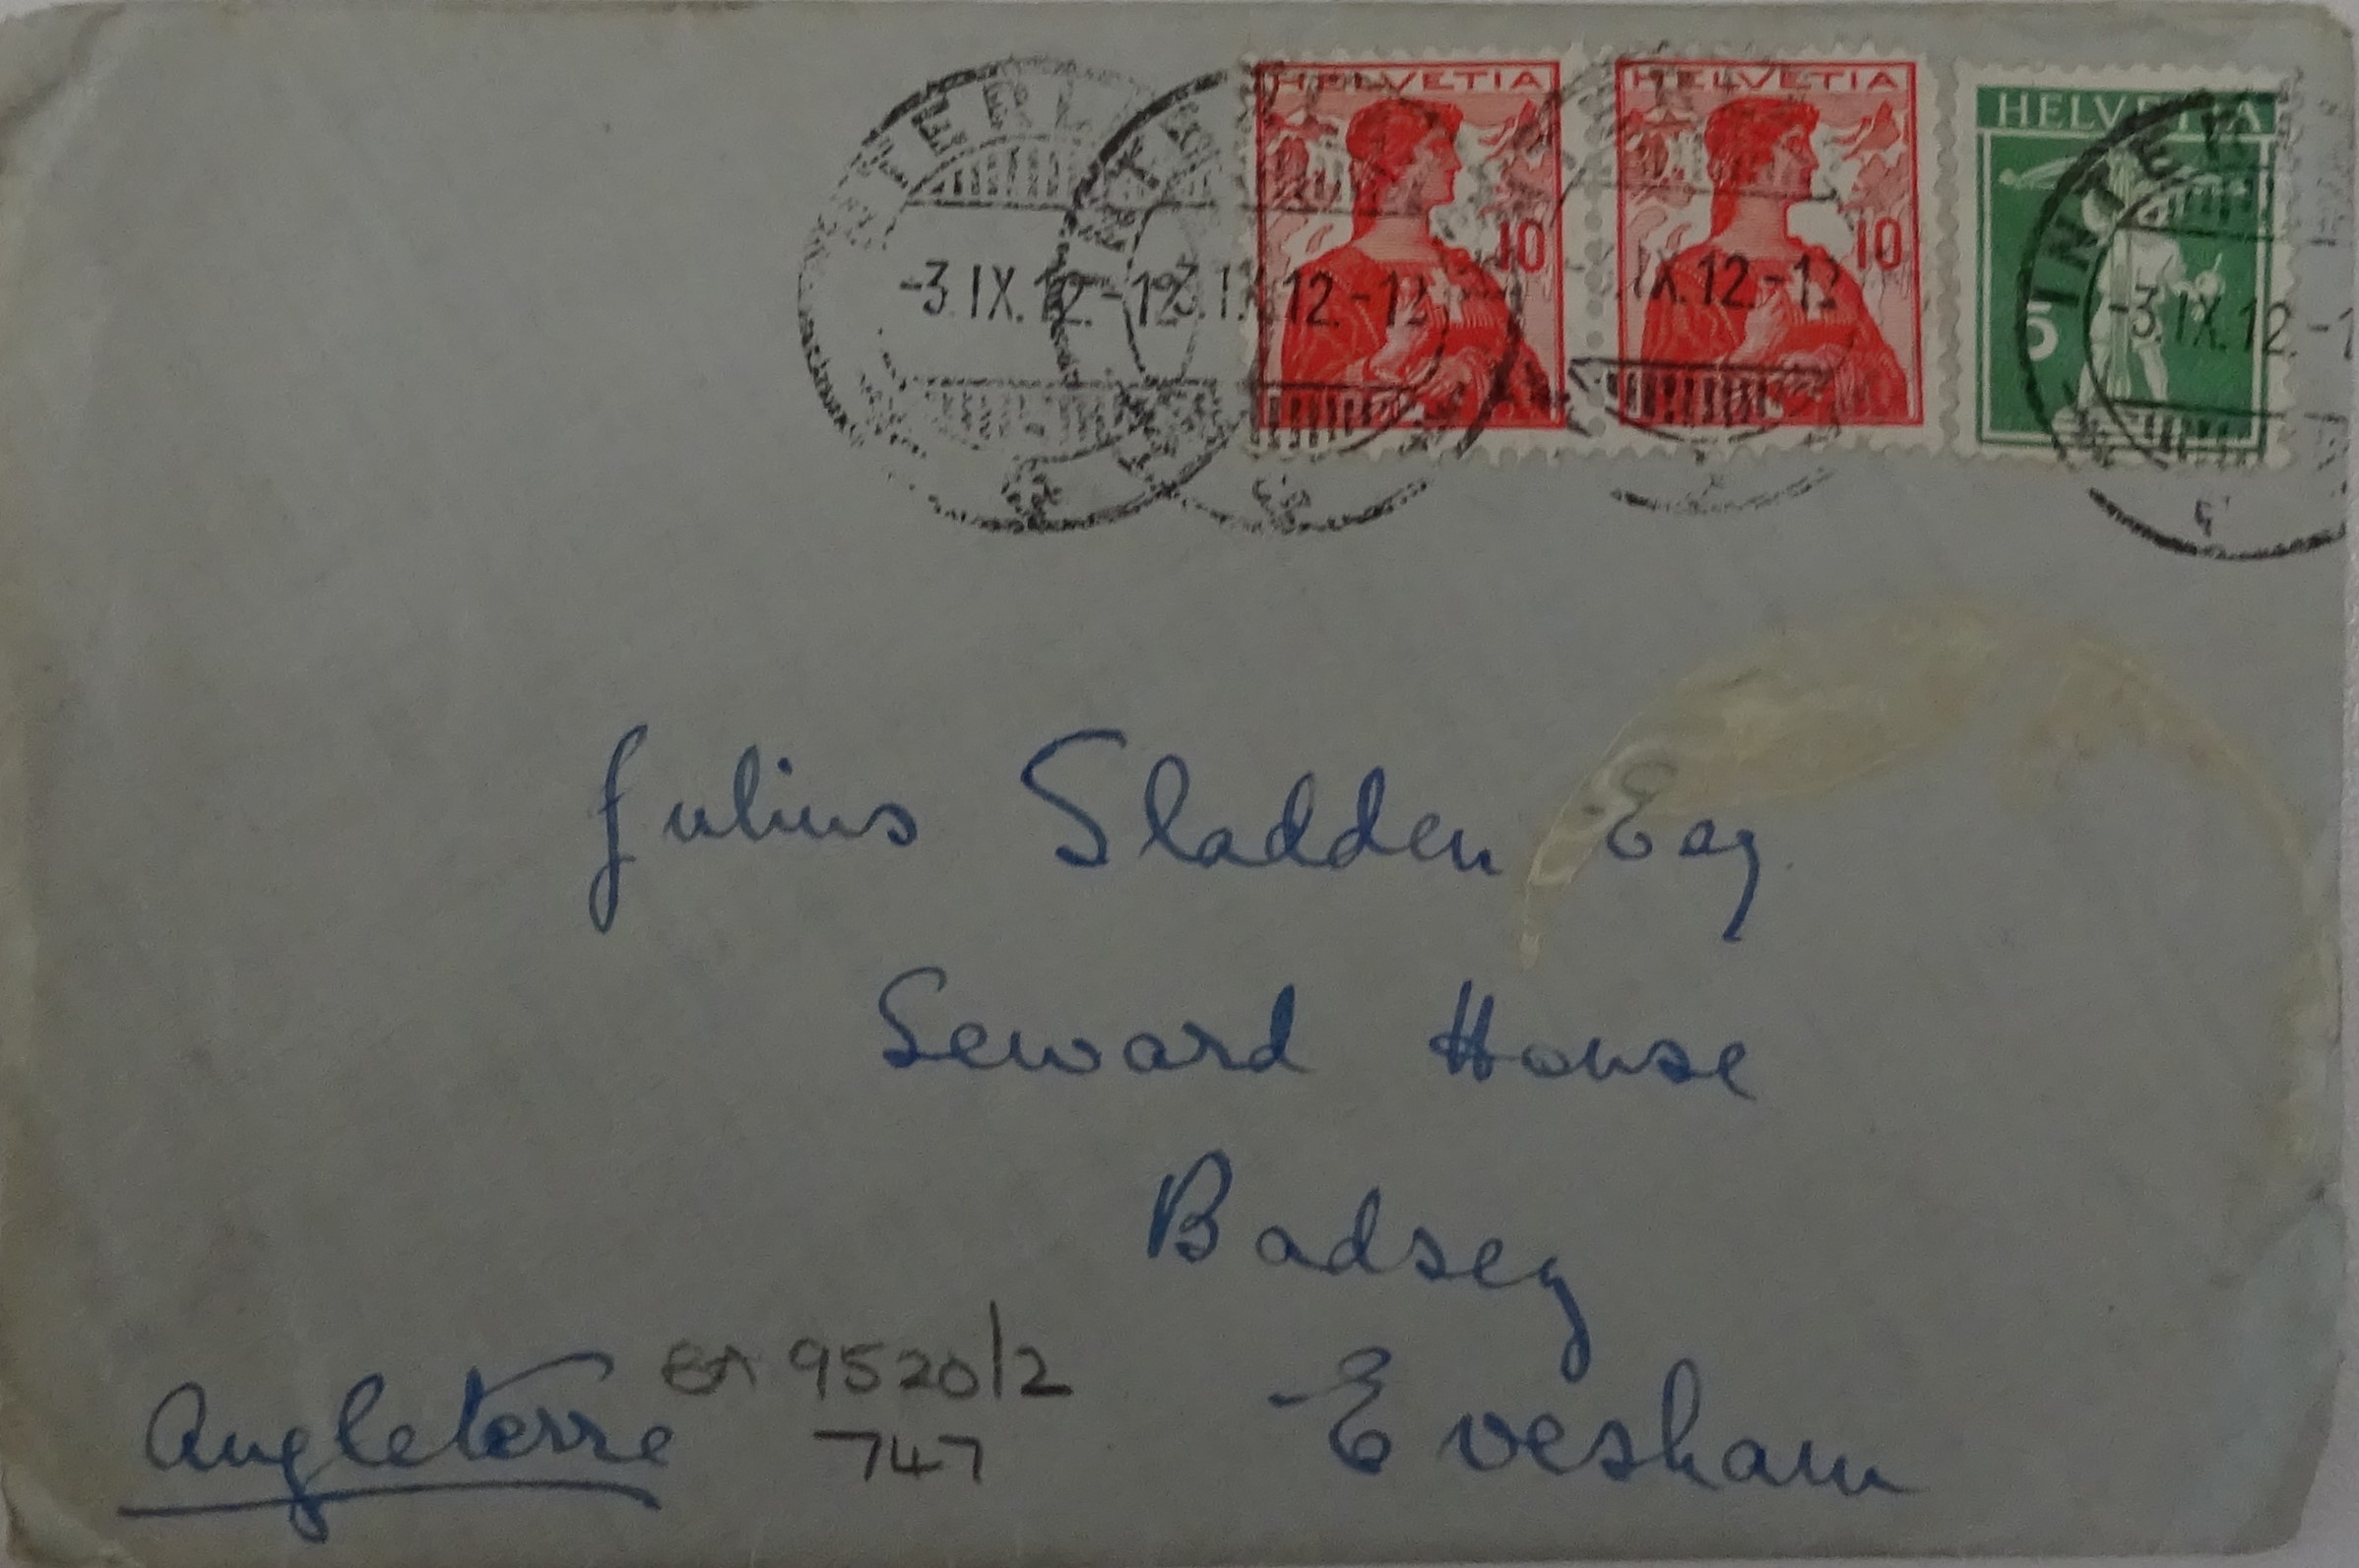 HELVETIA HELVETIA HELVETIA
10 10 5
-3.IX.12.-12
3.IX.12.-12
.IX.12.-12
INTER
-3.IX.12.-1
Julius Sladden Esq.
Seward House
Badsey
Evesham
Angleterre
9520/2
747